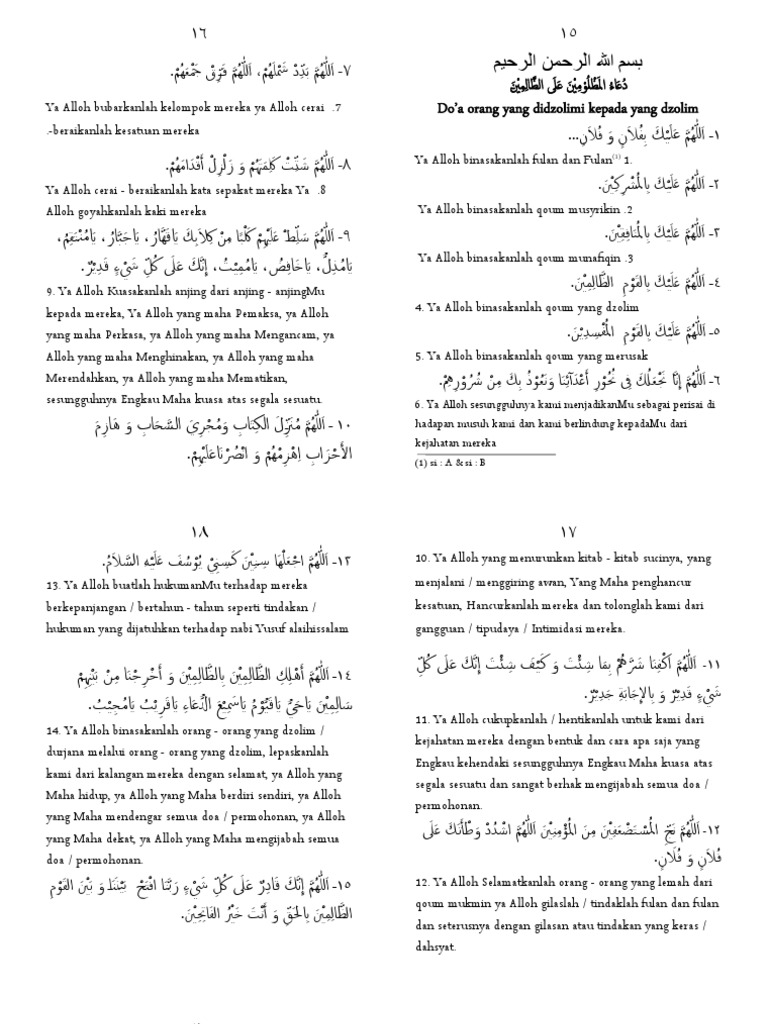 ١٥
بسم الله الرحمن الرحيم
دُعَاءُ المَظْلُوْمِيْنَ عَلَى الظَّالِمِيْنَ
Do’a orang yang didzolimi kepada yang dzolim
١- اَللّٰهُمَّ عَلَيْكَ بِفُلَانٍ وَ فُلَانٍ...
Ya Alloh binasakanlah fulan dan Fulan(1) 1.
٢- اَللّٰهُمَّ عَلَيْكَ بِالمُشْرِكِيْنَ.
Ya Alloh binasakanlah qoum musyrikin .2
٣- اَللّٰهُمَّ عَلَيْكَ بِالمُنَافِقِيْنَ.
Ya Alloh binasakanlah qoum munafiqin .3
٤- اَللّٰهُمَّ عَلَيْكَ بِالقَوْمِ الظَّالِمِيْنَ.
4. Ya Alloh binasakanlah qoum yang dzolim
٥- اَللّٰهُمَّ عَلَيْكَ بِالقَوْمِ المُفْسِدِيْنَ.
5. Ya Alloh binasakanlah qoum yang merusak
٦- اَللّٰهُمَّ إِنَّا نَجْعَلُكَ فِى نُحُوْرِ أَعْدَآئِنَا وَنَعُوْذُ بِكَ مِنْ شُرُوْرِهِمْ.
6. Ya Alloh sesungguhnya kami menjadikanMu sebagai perisai di
hadapan musuh kami dan kami berlindung kepadaMu dari
kejahatan mereka
(1) si : A & si : B
١٦
٧- اَللّٰهُمَّ بَدِّدْ شَمْلَهُمْ، اَللّٰهُمَّ فَرِّقْ جَمْعَهُمْ.
Ya Alloh bubarkanlah kelompok mereka ya Alloh cerai .7
.-beraikanlah kesatuan mereka
٨- اَللّٰهُمَّ شَتِّتْ كَلِمَتَهُمْ وَ زَلْزِلْ أَقْدَامَهُمْ.
Ya Alloh cerai - beraikanlah kata sepakat mereka Ya .8
Alloh goyahkanlah kaki mereka
٩- اَللّٰهُمَّ سَلِّطْ عَلَيْهِمْ كَلْبًا مِنْ كِلَابِكَ يَاقَهَّارُ، يَاجَبَّارُ، يَامُنْتَقِمُ،
يَامُذِلُّ، يَاخَافِضُ، يَامُمِيْتُ، إِنَّكَ عَلَى كُلِّ شَيْءٍ قَدِيْرٌ.
9. Ya Alloh Kuasakanlah anjing dari anjing - anjingMu
kepada mereka, Ya Alloh yang maha Pemaksa, ya Alloh
yang maha Perkasa, ya Alloh yang maha Mengancam, ya
Alloh yang maha Menghinakan, ya Alloh yang maha
Merendahkan, ya Alloh yang maha Mematikan,
sesungguhnya Engkau Maha kuasa atas segala sesuatu.
١٠- اَللّٰهُمَّ مُنَزِّلَ الكِتَابِ وَمُجْرِيَ السَّحَابِ وَ هَازِمَ
الأَحْزَابِ اِهْزِمْهُمْ وَ انْصُرْنَاعَلَيْهِمْ.
١٧
10. Ya Alloh yang menurunkan kitab - kitab sucinya, yang
menjalani / menggiring awan, Yang Maha penghancur
kesatuan, Hancurkanlah mereka dan tolonglah kami dari
gangguan / tipudaya / Intimidasi mereka.
١١- اَللّٰهُمَّ اَكْفِنَا شَرَّهُمْ بِمَا شِئْتَ وَ كَيْفَ شِئْتَ إِنَّكَ عَلَى كُلِّ
شَيْءٍ قَدِيْرٌ وَ بِالإِجَابَةِ جَدِيْرٌ.
11. Ya Alloh cukupkanlah / hentikanlah untuk kami dari
kejahatan mereka dengan bentuk dan cara apa saja yang
Engkau kehendaki sesungguhnya Engkau Maha kuasa atas
segala sesuatu dan sangat berhak mengijabah semua doa /
permohonan.
١٢- اَللّٰهُمَّ نَجِّ المُسْتَضْعَفِيْنَ مِنَ المُؤْمِنِيْنَ اَللّٰهُمَّ اشْدُدْ وَطْأَتَكَ عَلَى
فُلَانٍ وَ فُلَانٍ.
12. Ya Alloh Selamatkanlah orang - orang yang lemah dari
qoum mukmin ya Alloh gilaslah / tindaklah fulan dan fulan
dan seterusnya dengan gilasan atau tindakan yang keras /
dahsyat.
١٨
١٣- اَللّٰهُمَّ اجْعَلْهَا سِنِيْنَ كَسِنِيْ يُوْسُفَ عَلَيْهِ السَّلَامُ.
13. Ya Alloh buatlah hukumanMu terhadap mereka
berkepanjangan / bertahun - tahun seperti tindakan /
hukuman yang dijatuhkan terhadap nabi Yusuf alaihissalam
١٤- اَللّٰهُمَّ أَهْلِكِ الظَّالِمِيْنَ بِالظَّالِمِيْنَ وَ أَخْرِجْنَا مِنْ بَيْنِهِمْ
سَالِمِيْنَ يَاحَيُّ يَاقَيُّوْمُ يَاسَمِيْعَ الدُّعَاءِ يَاقَرِيْبُ يَامُجِيْبُ.
14. Ya Alloh binasakanlah orang - orang yang dzolim /
durjana melalui orang - orang yang dzolim, lepaskanlah
kami dari kalangan mereka dengan selamat, ya Alloh yang
Maha hidup, ya Alloh yang Maha berdiri sendiri, ya Alloh
yang Maha mendengar semua doa / permohonan, ya Alloh
yang Maha dekat, ya Alloh yang Maha mengijabah semua
doa / permohonan.
١٥- اَللّٰهُمَّ إِنَّكَ قَادِرٌ عَلَى كُلِّ شَيْءٍ رَبَّنَا افْتَحْ بَيْنَنَا وَ بَيْنَ القَوْمِ
الظَّالِمِيْنَ بِالحَقِّ وَ أَنْتَ خَيْرُ الفَاتِحِيْنَ.